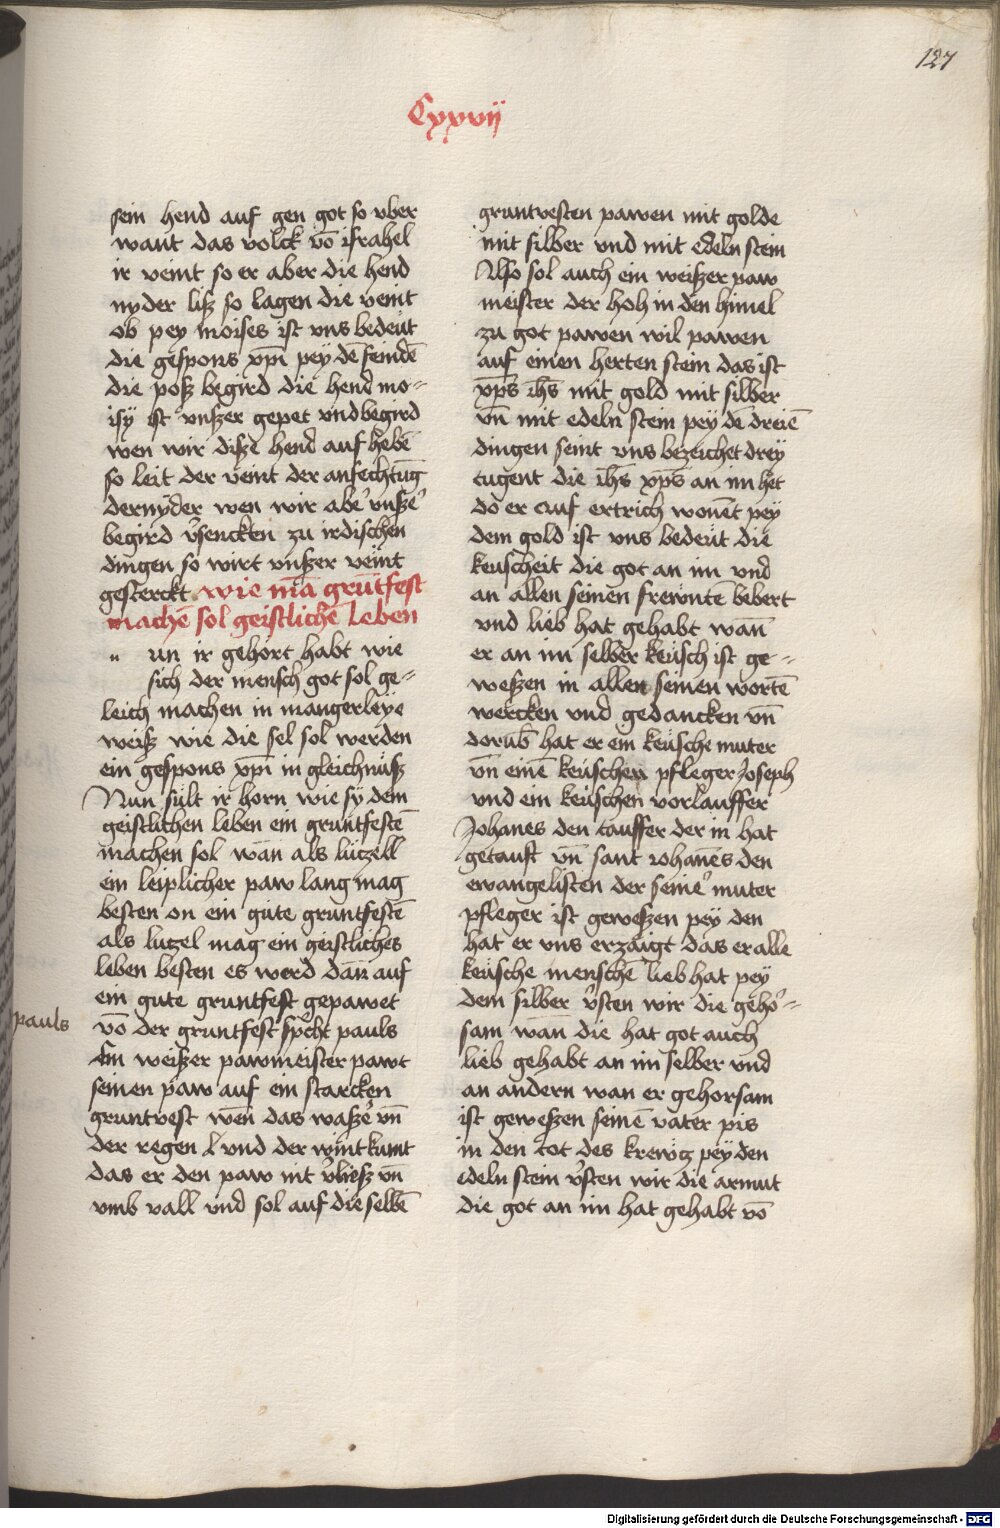 127
Cxxvij
sein hend auf gen got so vber
want das volck vō israhel
ir veint so er aber die hend
nyder lisz so lagen die veint
ob pey moises ist vns bedeüt
die gespons xp̄i pey dē feindē
die posz begird die hend mo=
isy ist vnszer gepet vnd begird
wen wir diszē hend auf hebē
so leit der veint der anfechtūg
dernyder wen wir abe' vnsze'
begird v'sencktēn zu irdischen
dingen so wirt vnszer veint
gesterckt wie mā grūtfest
machē sol geistlichē leben
n un ir gehort habt wie
sich der mensch got sol ge=
leich machen in mangerleye
weisz wie die sel sol werden
ein gespons xp̄i in gleichnüsz
Nun sült ir horn wie sy dem
geistlichen leben ein gruntfestē
machen sol wān als lützell
ein leiplicher paw lang mag
besten on ein güte gruntfestē
als lutzel mag ein geistliches
leben besten es werd dān auf
ein gute gruntfest gepawet
vō der gruntfest sp'cht pauls
pauls
Ein weiszer pawmeister pawt
seinen paw auf ein starcken
gruntvest wēn das wasze' vn̄
der regen l vnd der wint kumt
das er den paw nit v'liesz vn̄
vmb vall vnd sol auf die selbē
gruntvesten pawen mit golde
mit silber vnd mit edeln stein
Also sol auch ein weiszer paw
meister der hoh in den himel
zu got pawen wil pawen
auf einen herten stein das ist
xp̄s ih̄s mit gold mit silber
vn̄ mit edeln stein pey dē dreiē
dingen seint vns bezeichet drey
tugent die ih̄s xp̄s an im het
do er auf ertrich wonēt pey
dem gold ist vns bedeüt die
keuscheit die got an im vnd
an allen seinen frewntē bebert
vnd lieb hat gehabt wān
er an im selber keüsch ist ge=
weszen in allen seinen wortē
wercken vnd gedancken vn̄
dorūb hat er ein keüsche muter
vn̄ einē keüschen pfleger Joseph
vnd ein keüschen vorlauffer
Johanes den tauffer der in hat
getauft vn̄ sant iohanēs den
ewangelisten der seine' muter
pfleger ist geweszen pey den
hat er vns erzaigt das er alle
keüsche menschē lieb hat pey
dem silber v'sten wir die geho'=
sam wān die hat got auch
lieb gehabt an im selber vnd
an andern wan er gehorsam
ist geweszen seinē vater pis
in den tot des krewtz pey den
edeln stein v'sten wir die armut
die got an im hat gehabt vō
Digitalisierung gefördert durch die Deutsche Forschungsgemeinschaft - DFG